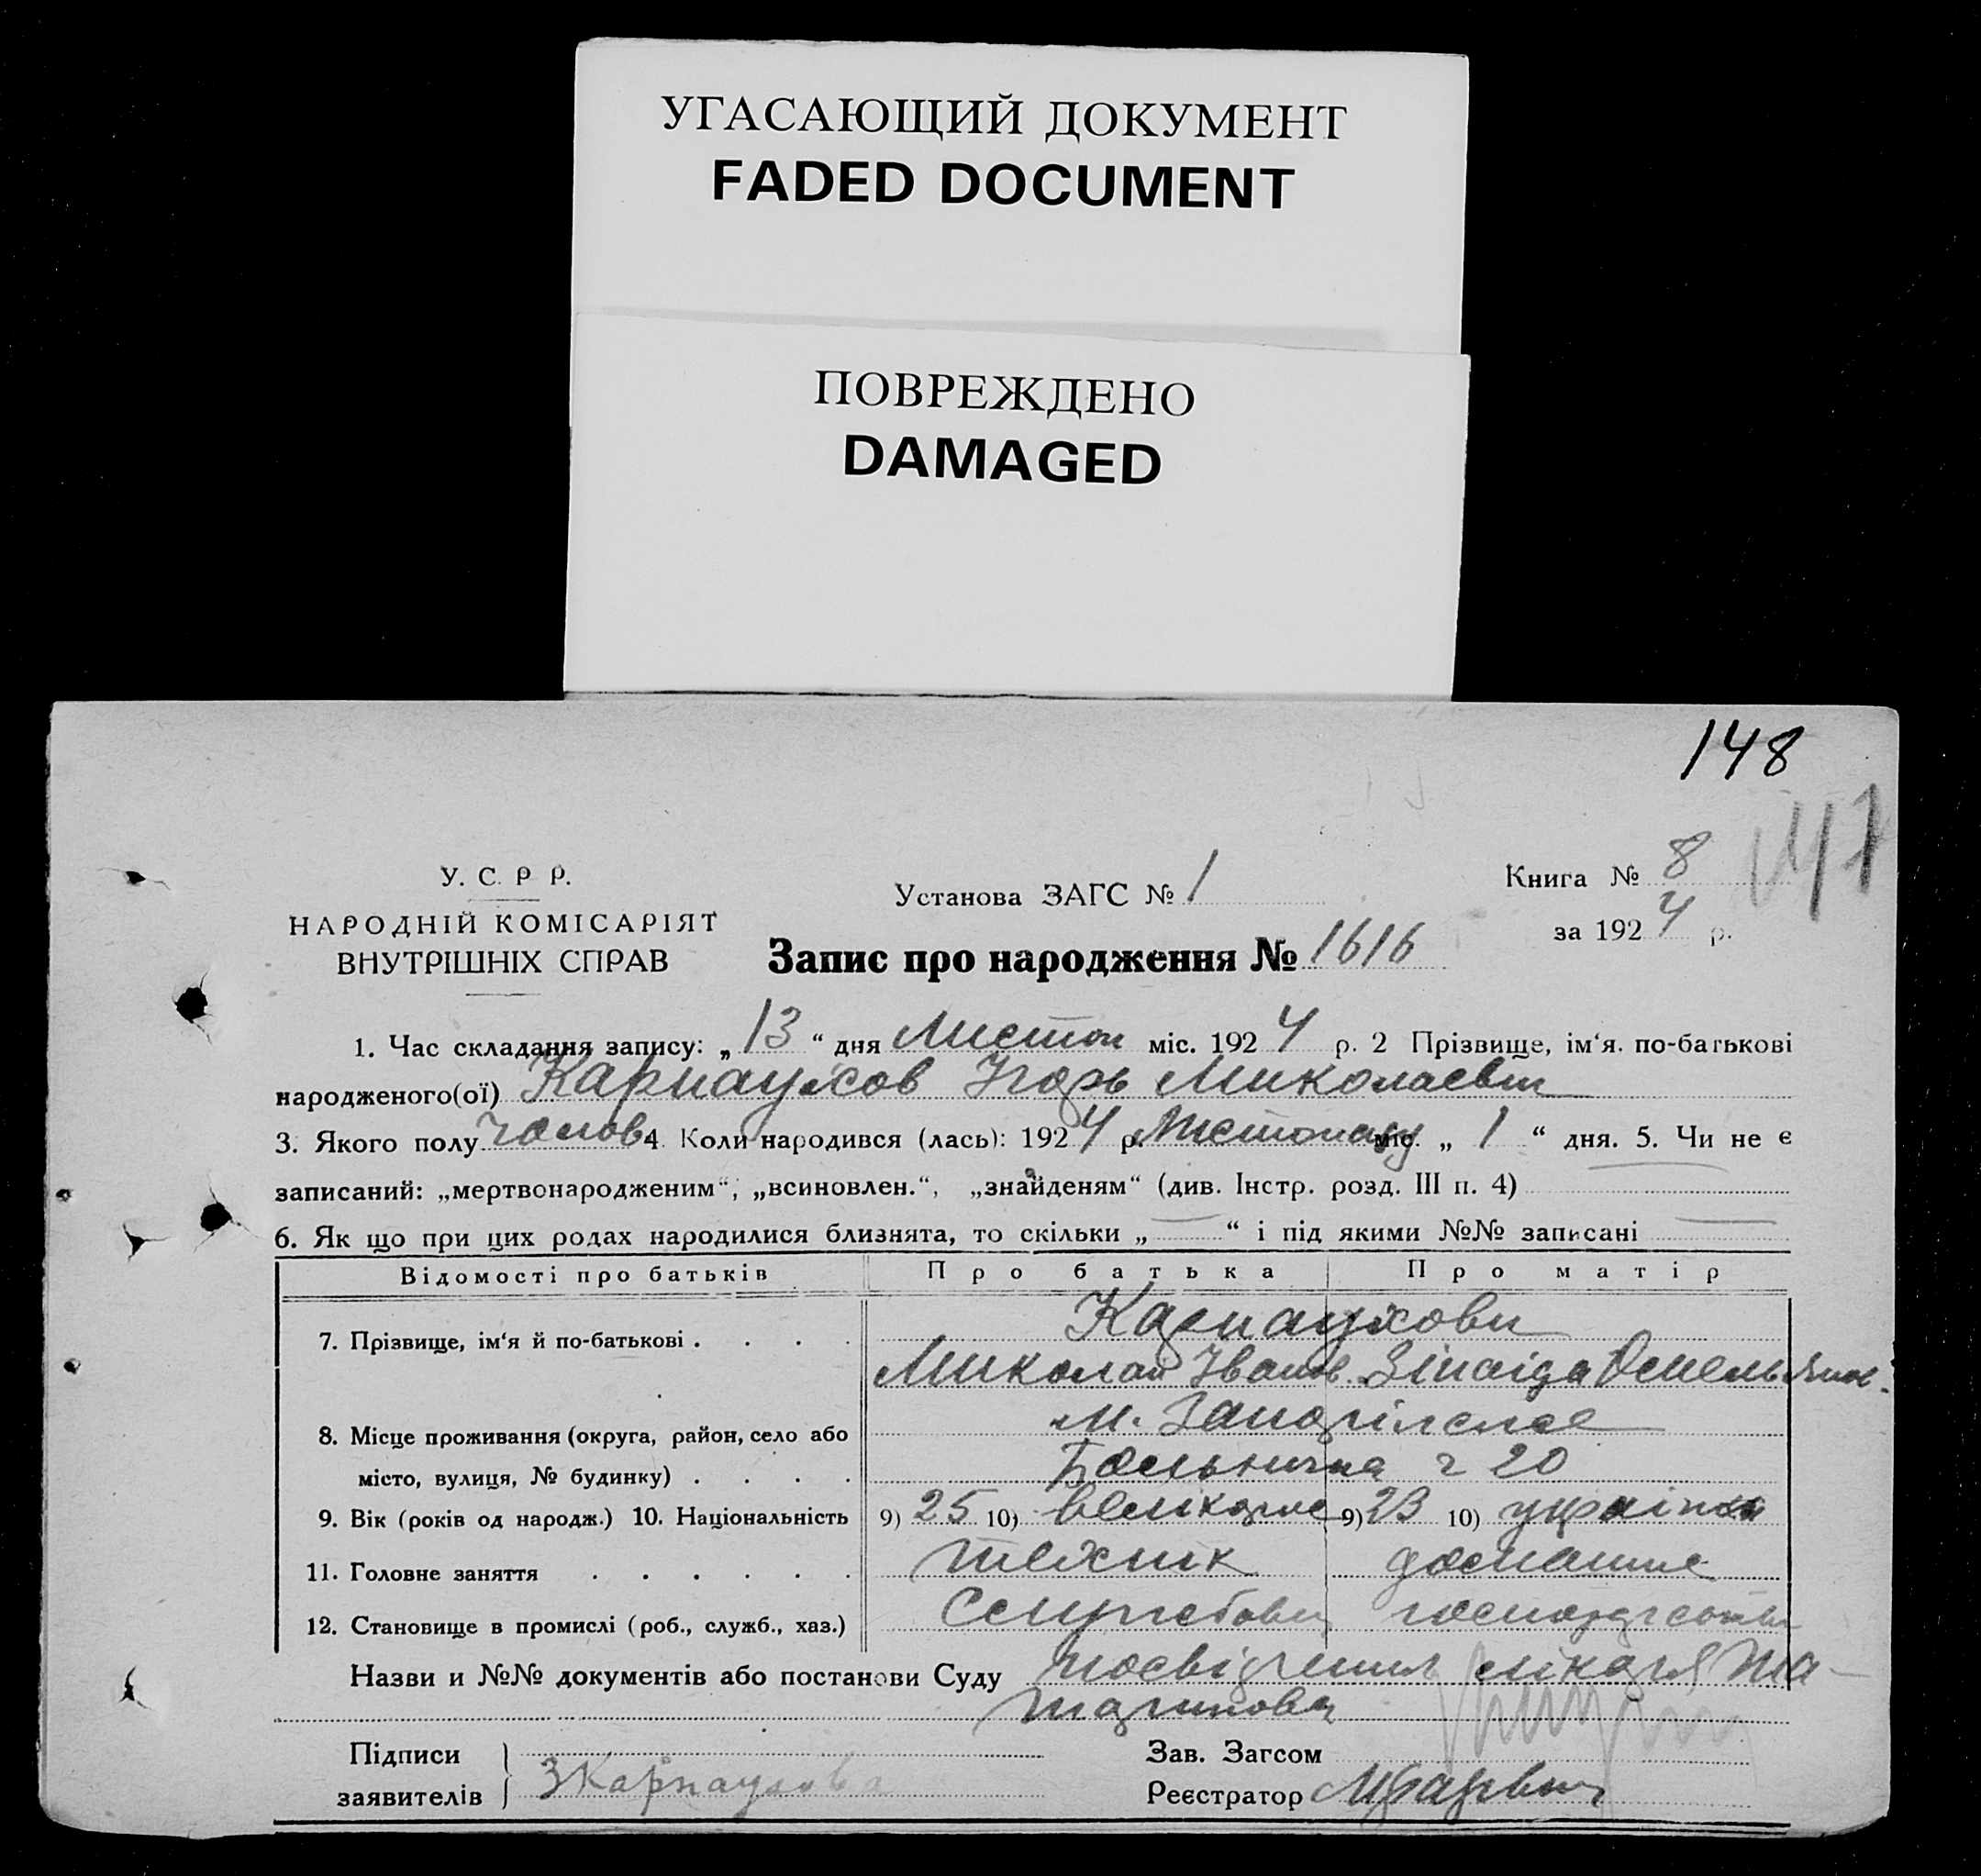 УГАСАЮЩИЙ ДОКУМЕНТ
FADED DOCUMENT
ПОВРЕЖДЕНО
DAMAGED
148
У. С. Р Р.
НАРОДНІЙ КОМІСАРІЯТ
ВНУТРІШНІХ СПРАВ
Установа ЗАГС № 1
Книга № 8
за 1924 р.
Запис про народження № 1616
1. Час складання запису: „ 13 “ дня Листоп міс. 1924 р. 2 Прізвище, ім‘я. по-батькові
народженого(ої) Карнаухов Ігорь Миколаевич
3. Якого полу чолов 4. Коли народився (лась): 1924 р. Листопаду міс. „ 1 “ дня. 5. Чи не є
записаний: „мертвонародженим“, „всиновлен.“, „знайденям“ (див. Інстр. розд. III п. 4)
6. Як що при цих родах народилися близнята, то скільки „ “ і під якими №№ записані
Відомості про батьків Про батька Про матір
7. Прізвище, ім‘я й по-батькові . . . . Карнаухови
Миколай Іванов. Зінаіда Омельянов.
8. Місце проживання (округа, район, село або м.
місто, вулиця, № будинку) . . . . Больнична ч 20
9. Вік (років од народж.) 10. Національність 9) 25 10) великорос 9) 23 10) украінка
11. Головне заняття . . . . . . технік домашне
12. Становище в промислі (роб., служб., хаз.)
Назви и №№ документів або постанови Суду посвідчення лікаря
Підписи
заявителів ЗКарнаухова
Зав. Загсом
Реєстратор